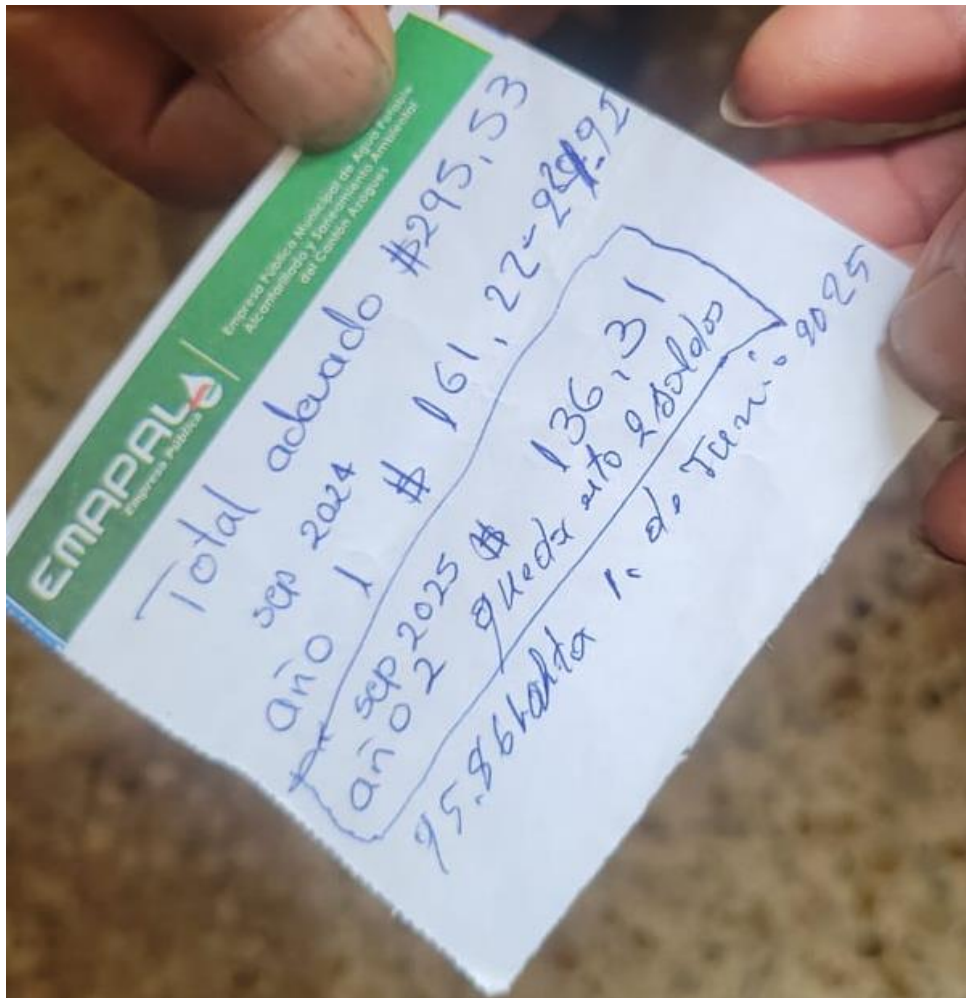 EMAPAL
Empresa Pública
Empresa Pública Municipal de Agua Potable
Alcantarillado y Saneamiento Ambiental
del Cantón Azogues
Total adeuado $295,53
sep 2024
año 1 $ 161,22-
sep 2025 $ 136,31
año 2 queda esto 2 soldos
hahta 1. de Juni. 2025